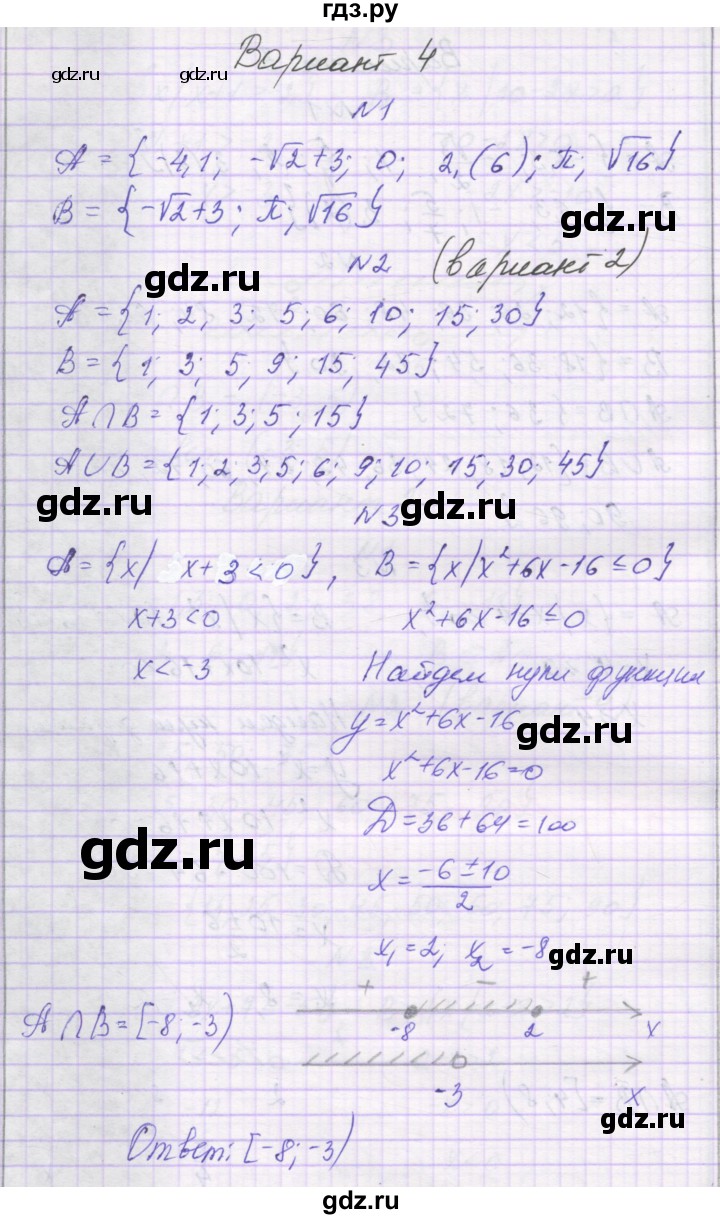 гдз.ру
Вариант 4
gdz.ru gdz.ru
№1
A = {-4,1; -√2+3; 0; 2,(6); π; √16}
B = {-√2+3; π; √16}
gdz.ru
№2 (вариант 2)
gdz.ru
A = {1; 2; 3; 5; 6; 10; 15; 30}
B = {1; 3; 5; 9; 15; 45}
gdz.ru
A∩B = {1; 3; 5; 15}
A∪B = {1; 2; 3; 5; 6; 9; 10; 15; 30; 45}
gdz.ru gdz.ru
№3
A = {x/ x+3<0}, B = {x/x²+6x-16≤0}
x+3<0 x²+6x-16≤0
x<-3 Найдем нули функции
y=x²+6x-16
gdz.ru
x²+6x-16=0
D=36+64=100
gdz.ru
x = (-6±10)/2
x₁=2; x₂=-8
gdz.ru
A∩B=[-8; -3)
+ - +
-8 2 x
-3 x
gdz.ru
Ответ: [-8; -3)
gdz.ru